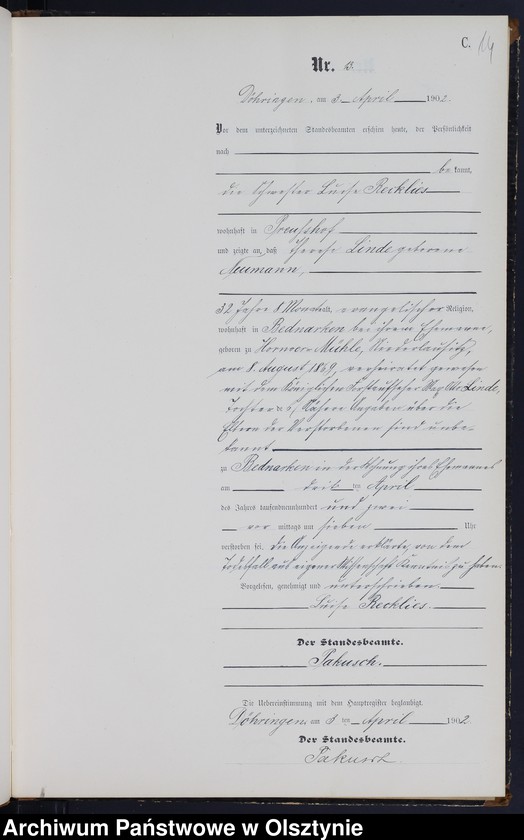 C. 14
Nr. 13.
Döhringen, am 3. April 1902.
Vor dem unterzeichneten Standesbeamten erschien heute, der Persönlichkeit
nach
be kannt,
die Schwester Luise Recklies
wohnhaft in Preußhof
und zeigte an, daß Therese Linde geborene
Neumann,
32 Jahre 8 Monate alt, evangelischer Religion,
wohnhaft in Bednarken bei ihrem Ehemanne,
geboren zu Mühle, Niederlausitz,
am 8. August 1869, verheiratet gewesen
mit dem Königlichen Forstaufseher Linde,
Tochter des, Nähere Angaben über die
Eltern der Verstorbenen sind unbe-
kannt
zu Bednarken in der Wohnung ihres Ehemannes
am dritten April
des Jahres tausendneunhundert und zwei
vor mittags um sieben Uhr
verstorben sei. Die Anzeigende erklärte, von dem
Todesfall aus eigener Wissenschaft Kenntniß zu haben.
Vorgelesen, genehmigt und unterschrieben.
Luise Recklies.
Der Standesbeamte.
Pakusch.
Die Uebereinstimmung mit dem Hauptregister beglaubigt.
Döhringen, am 3 ten April 1902
Der Standesbeamte.
Pakusch.
Archiwum Państwowe w Olsztynie